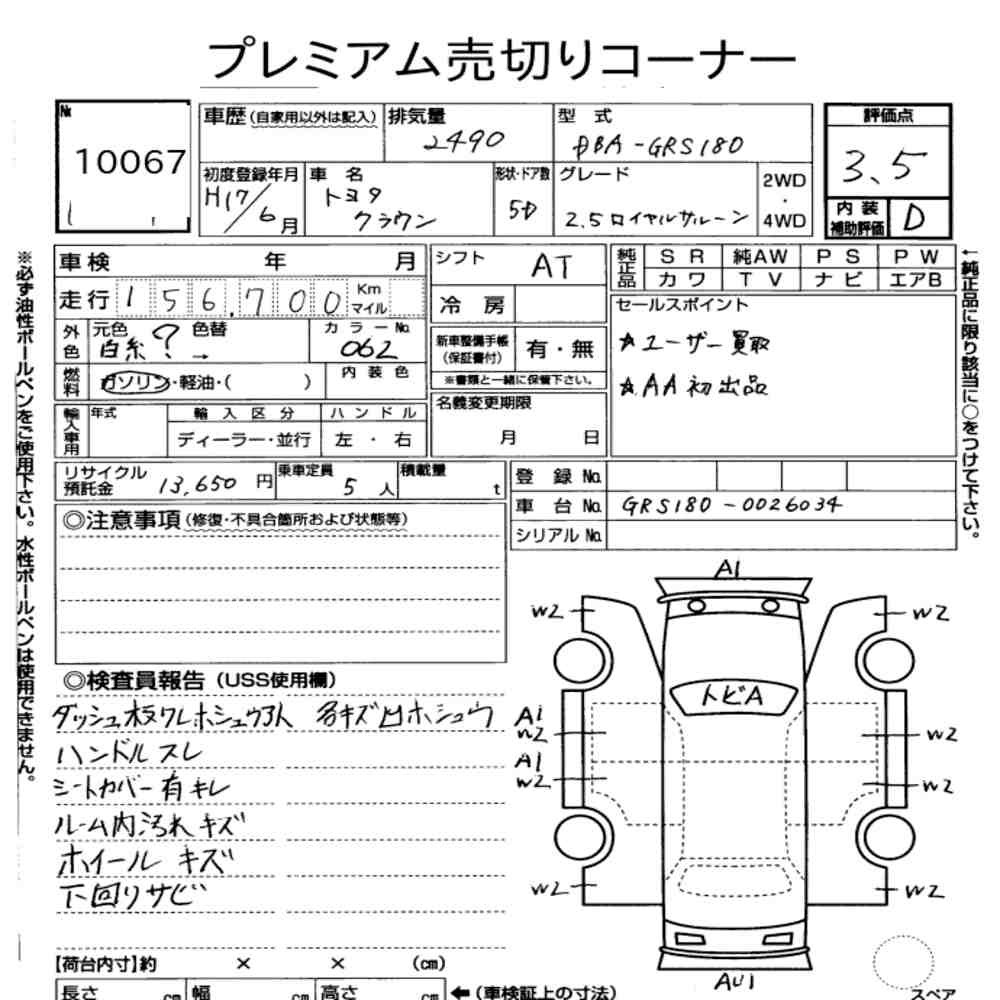 プレミアム売切りコーナー
№ 10067
車歴 (自家用以外は記入)
排気量 2490
型式 DBA-GRS180
評価点 3.5
初度登録年月 H17/6月
車名 トヨタ クラウン
形状・ドア数 5D
グレード 2.5ロイヤルサルーン
2WD・4WD
内装補助評価 D
車検 年 月
シフト AT
純正品 SR 純AW PS PW
カワ TV ナビ エアB
走行 156,700 Km マイル
冷房
セールスポイント
☆ユーザー買取
☆AA初出品
外色 元色 白系? 色替 →
カラーNo. 062
新車整備手帳(保証書付) 有・無
※書類と一緒に保管下さい。
燃料 ガソリン・軽油・( )
内装色
名義変更期限 月 日
輸入車用 年式 輸入区分 ハンドル
ディーラー・並行 左・右
リサイクル預託金 13,650円
乗車定員 5人
積載量 t
登録No.
車台No. GRS180-0026034
シリアルNo.
◎注意事項(修復・不具合箇所および状態等)
◎検査員報告(USS使用欄)
ハンドルスレ
シートカバー有キレ
ルーム内汚れキズ
ホイールキズ
下回りサビ
A1
W2 W2
トビA
A1
W2 W2
A1
W2 W2
W2 W2
AU1
【荷台内寸】約 × × (cm)
長さ cm 幅 cm 高さ cm ←(車検証上の寸法)
スペア
※必ず油性ボールペンをご使用下さい。水性ボールペンは使用できません。
←純正品に限り該当に○をつけて下さい。